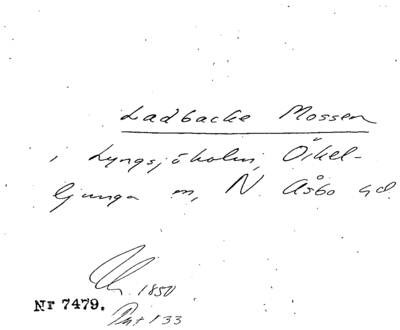 Ladbacke Mossen
i Lyngsjöholm, Örkel-
ljunga sn, N. Åsbo hd.
1850
Nr 7479.
133